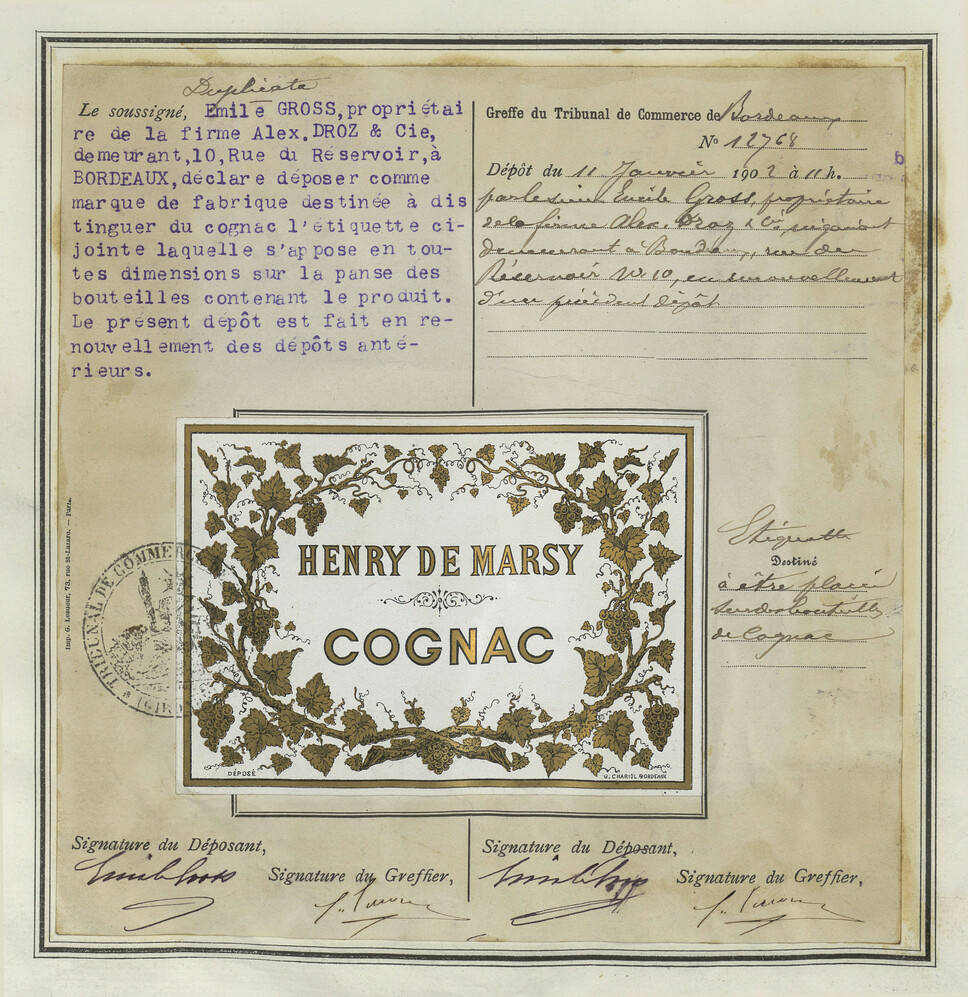 Duplicata
Le soussigné, Emile GROSS, propriétai
re de la firme Alex. DROZ & Cie,
demeurant, 10, Rue du Réservoir, à
BORDEAUX, déclare déposer comme
marque de fabrique destinée à dis
tinguer du cognac l'étiquette ci-
jointe laquelle s'appose en tou-
tes dimensions sur la panse des
bouteilles contenant le produit.
Le présent dépôt est fait en re-
nouvellement des dépôts anté-
rieurs.
Greffe du Tribunal de Commerce de Bordeaux
No 12768
Dépôt du 11 Janvier 1902 à 11 h.
par le sieur Emile Gross, propriétaire
de la firme Alex. Droz & Cie,
demeurant à Bordeaux, rue du
Réservoir No 10, en renouvellement
d'un précédent dépôt
HENRY DE MARSY
COGNAC
DÉPOSÉ
G. CHARIOL BORDEAUX
Etiquette
Destiné
à être placée
sur des bouteilles
de Cognac
TRIBUNAL DE COMMERCE
Signature du Déposant,
Emile Gross
Signature du Greffier,
Signature du Déposant,
Emile Gross
Signature du Greffier,